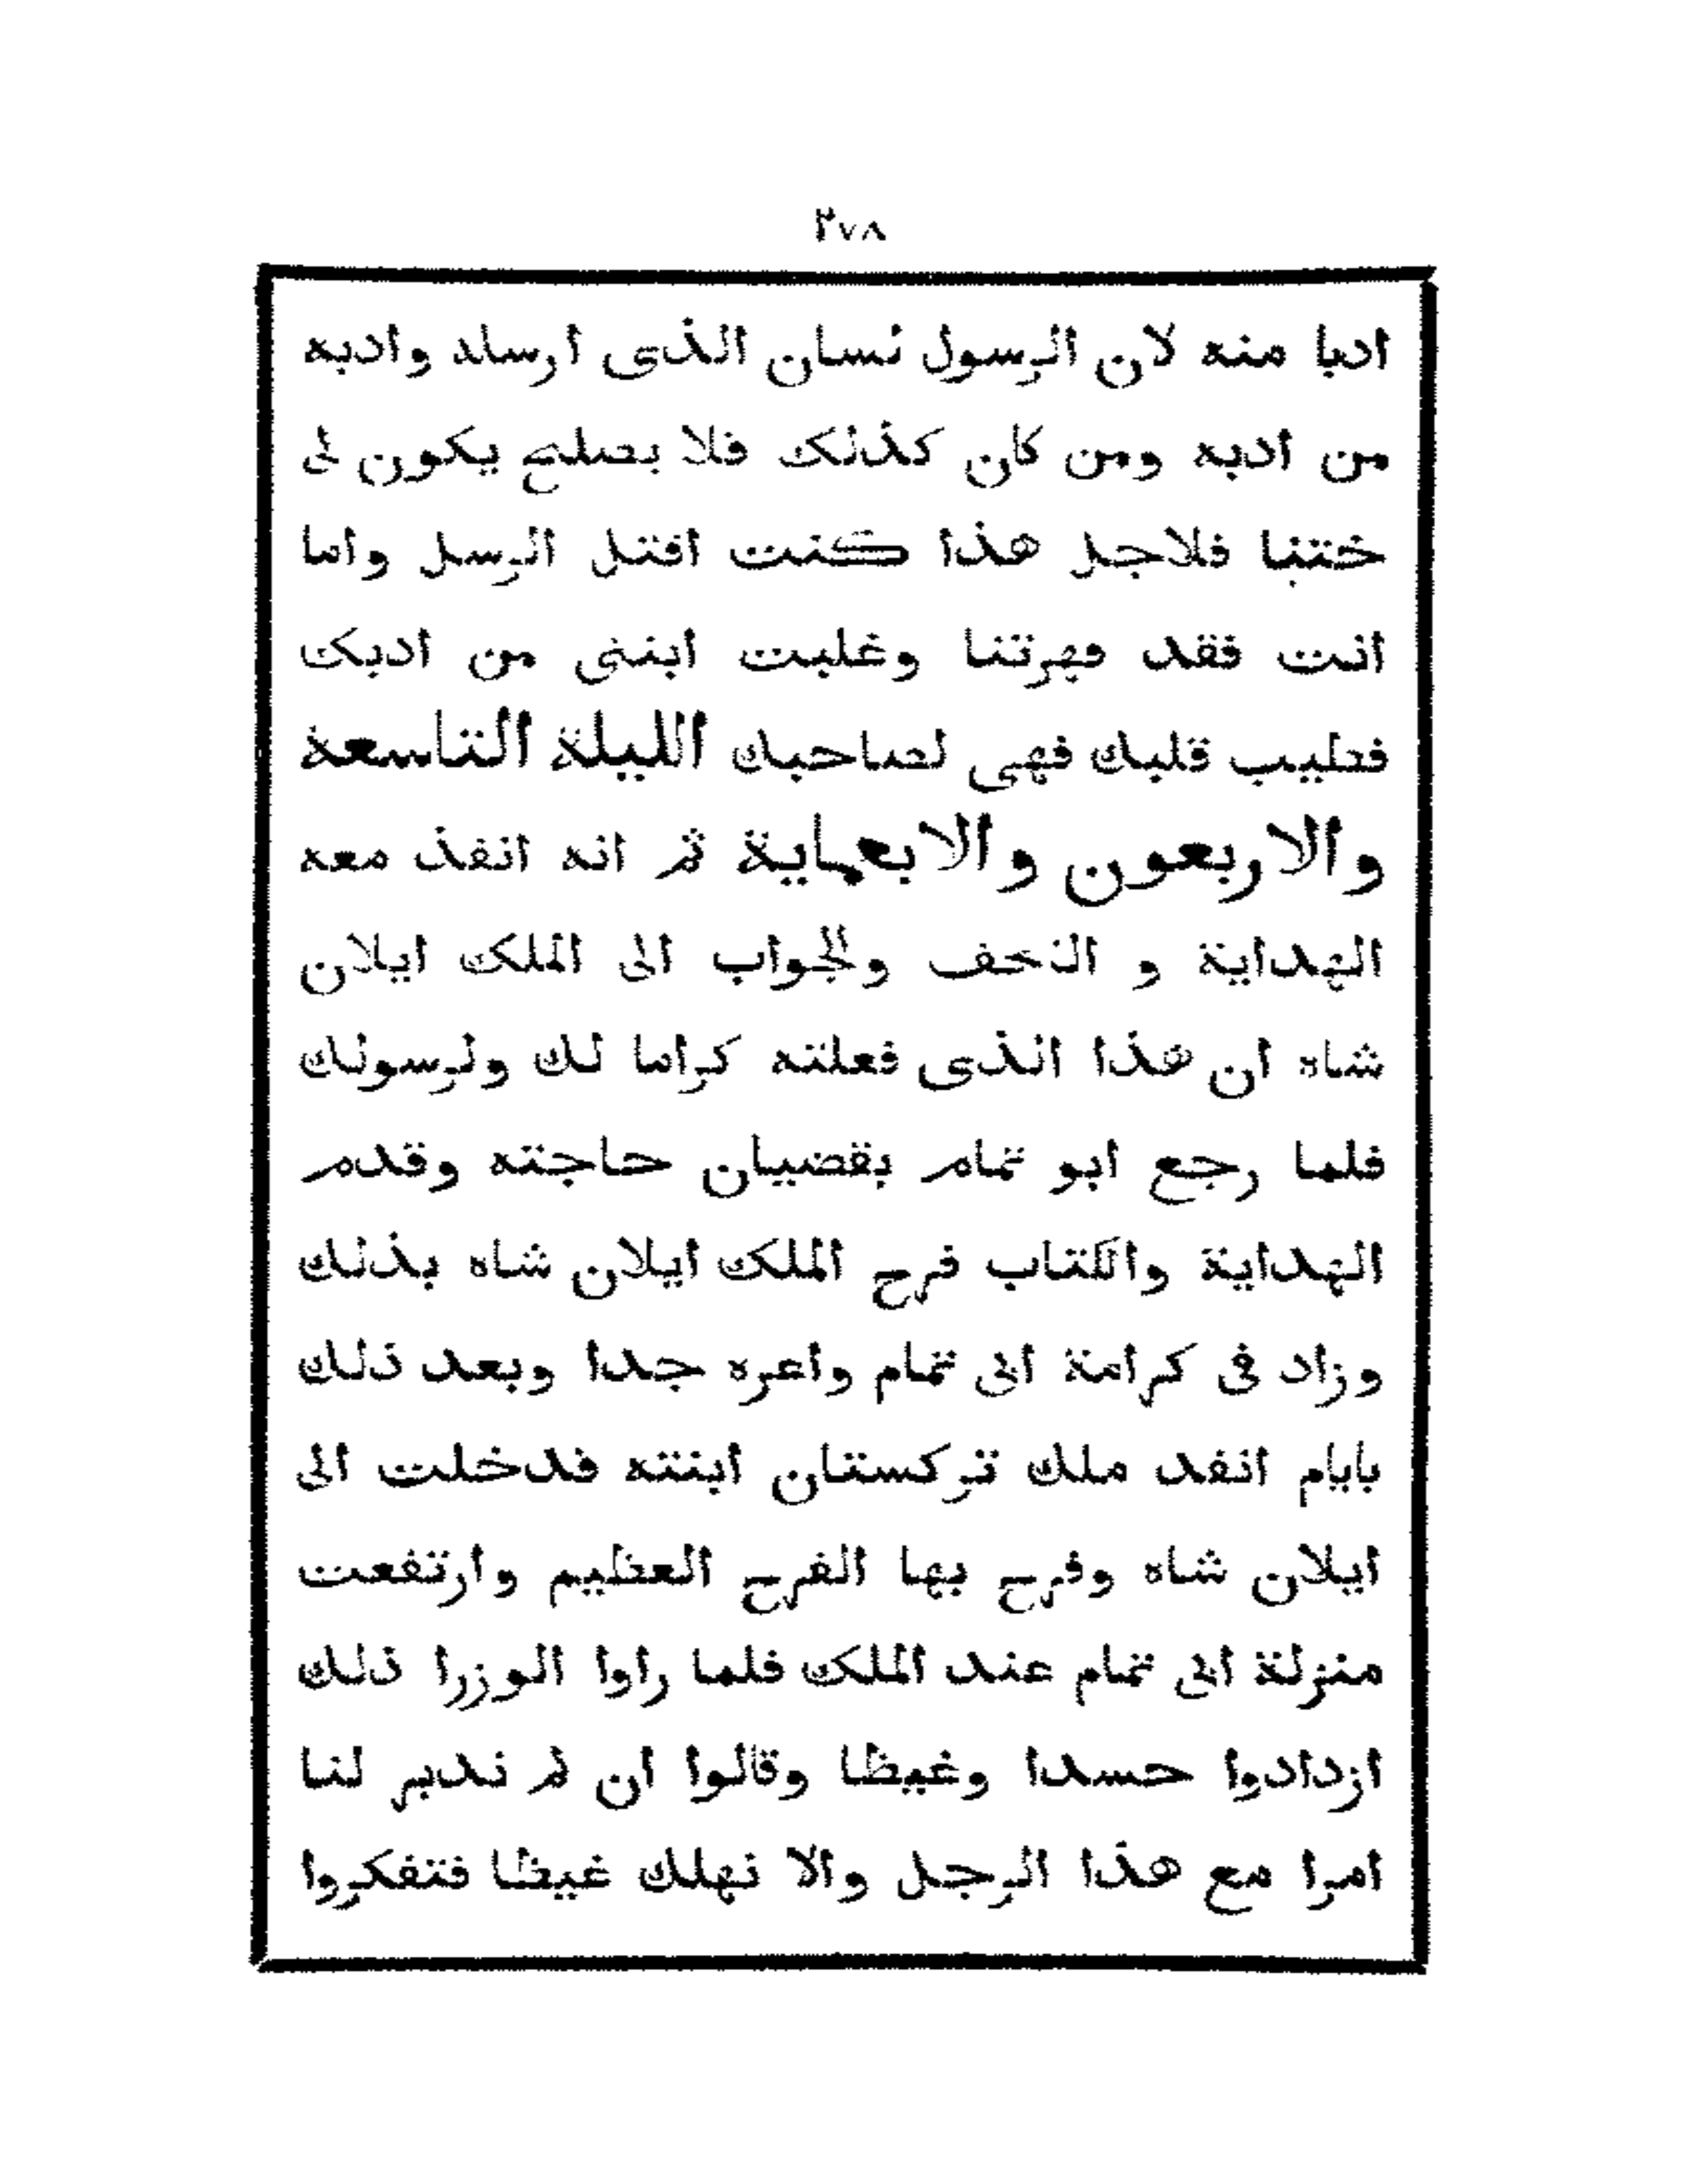 ٢٧٨
ادبا منه لان الرسول لسان الذى ارسله وادبه
من ادبه ومن كان كذلك فلا يصلح يكون لى
ختنا فلاجل هذا كنت اقتل الرسل واما
انت فقد قهرتنا وغلبت ابنتى من ادبك
فطيب قلبك فهى لصاحبك الليلة التاسعة
والاربعون والابعماية ثم انه انفذ معه
الهداية و التحف والجواب الى الملك ايلان
شاه ان هذا الذى فعلته كراما لك ولرسولك
فلما رجع ابو تمام بقضيان حاجته وقدم
الهداية والكتاب فرح الملك ايلان شاه بذلك
وزاد فى كرامة ابى تمام واعره جدا وبعد ذلك
بايام انفد ملك تركستان ابنته فدخلت الى
ايلان شاه وفرح بها الفرح العظيم وارتفعت
منزلة ابى تمام عند الملك فلما راوا الوزرا ذلك
ازدادوا حسدا وغيظا وقالوا ان لم ندبر لنا
امرا مع هذا الرجل والا نهلك غيظا فتفكروا